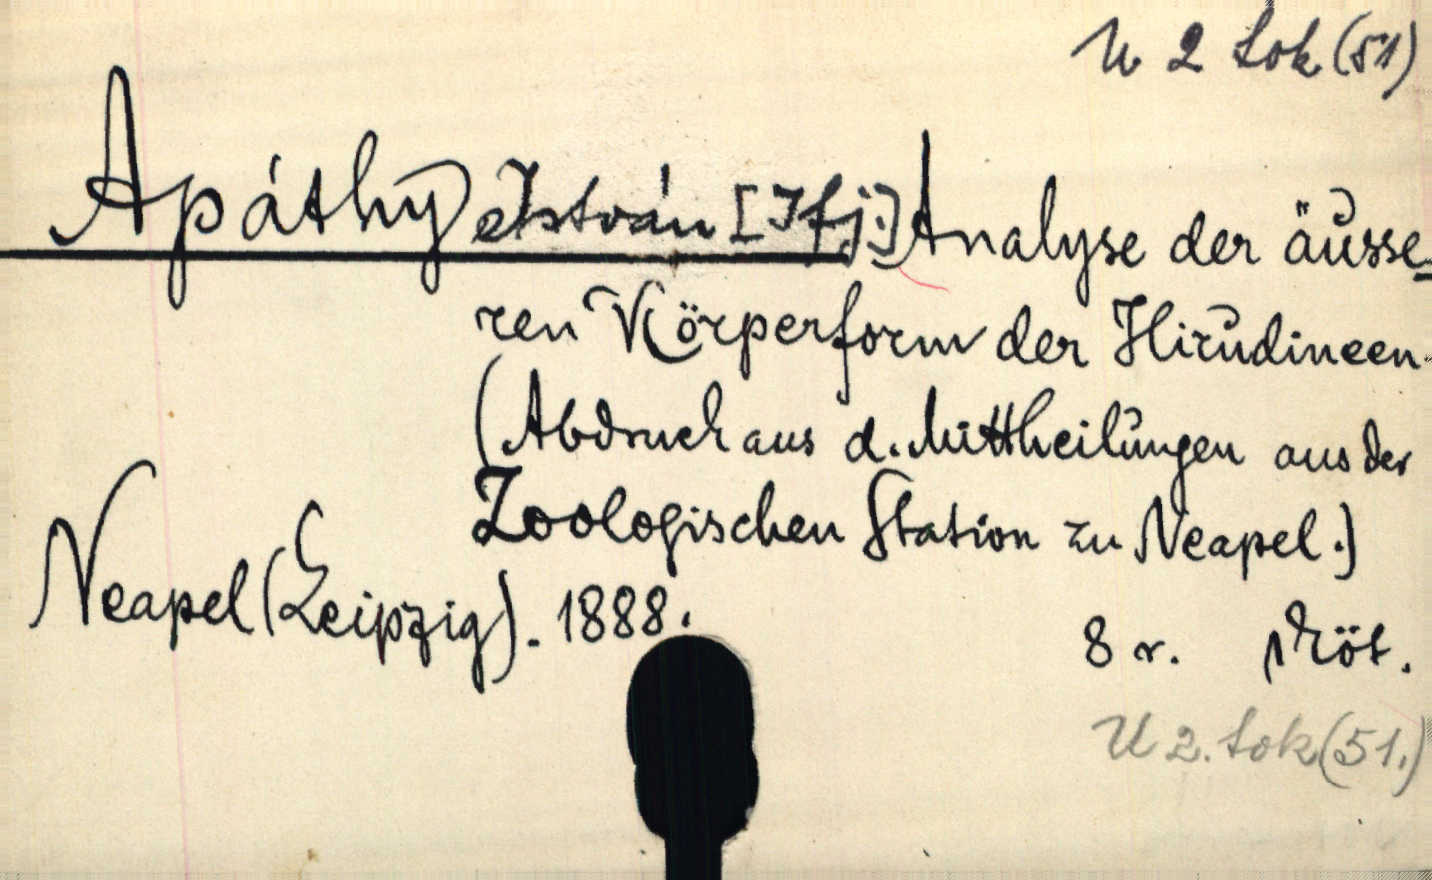 U 2 Sok (51)
Apáthy István [Ifj.] Analyse der äusse-
ren Körperform der Hirudineen.
(Abdruck aus d. Mittheilungen aus der
Zoologischen Station zu Neapel.)
Neapel (Leipzig). 1888.
8 r. 1 köt.
U 2. Sok (51.)